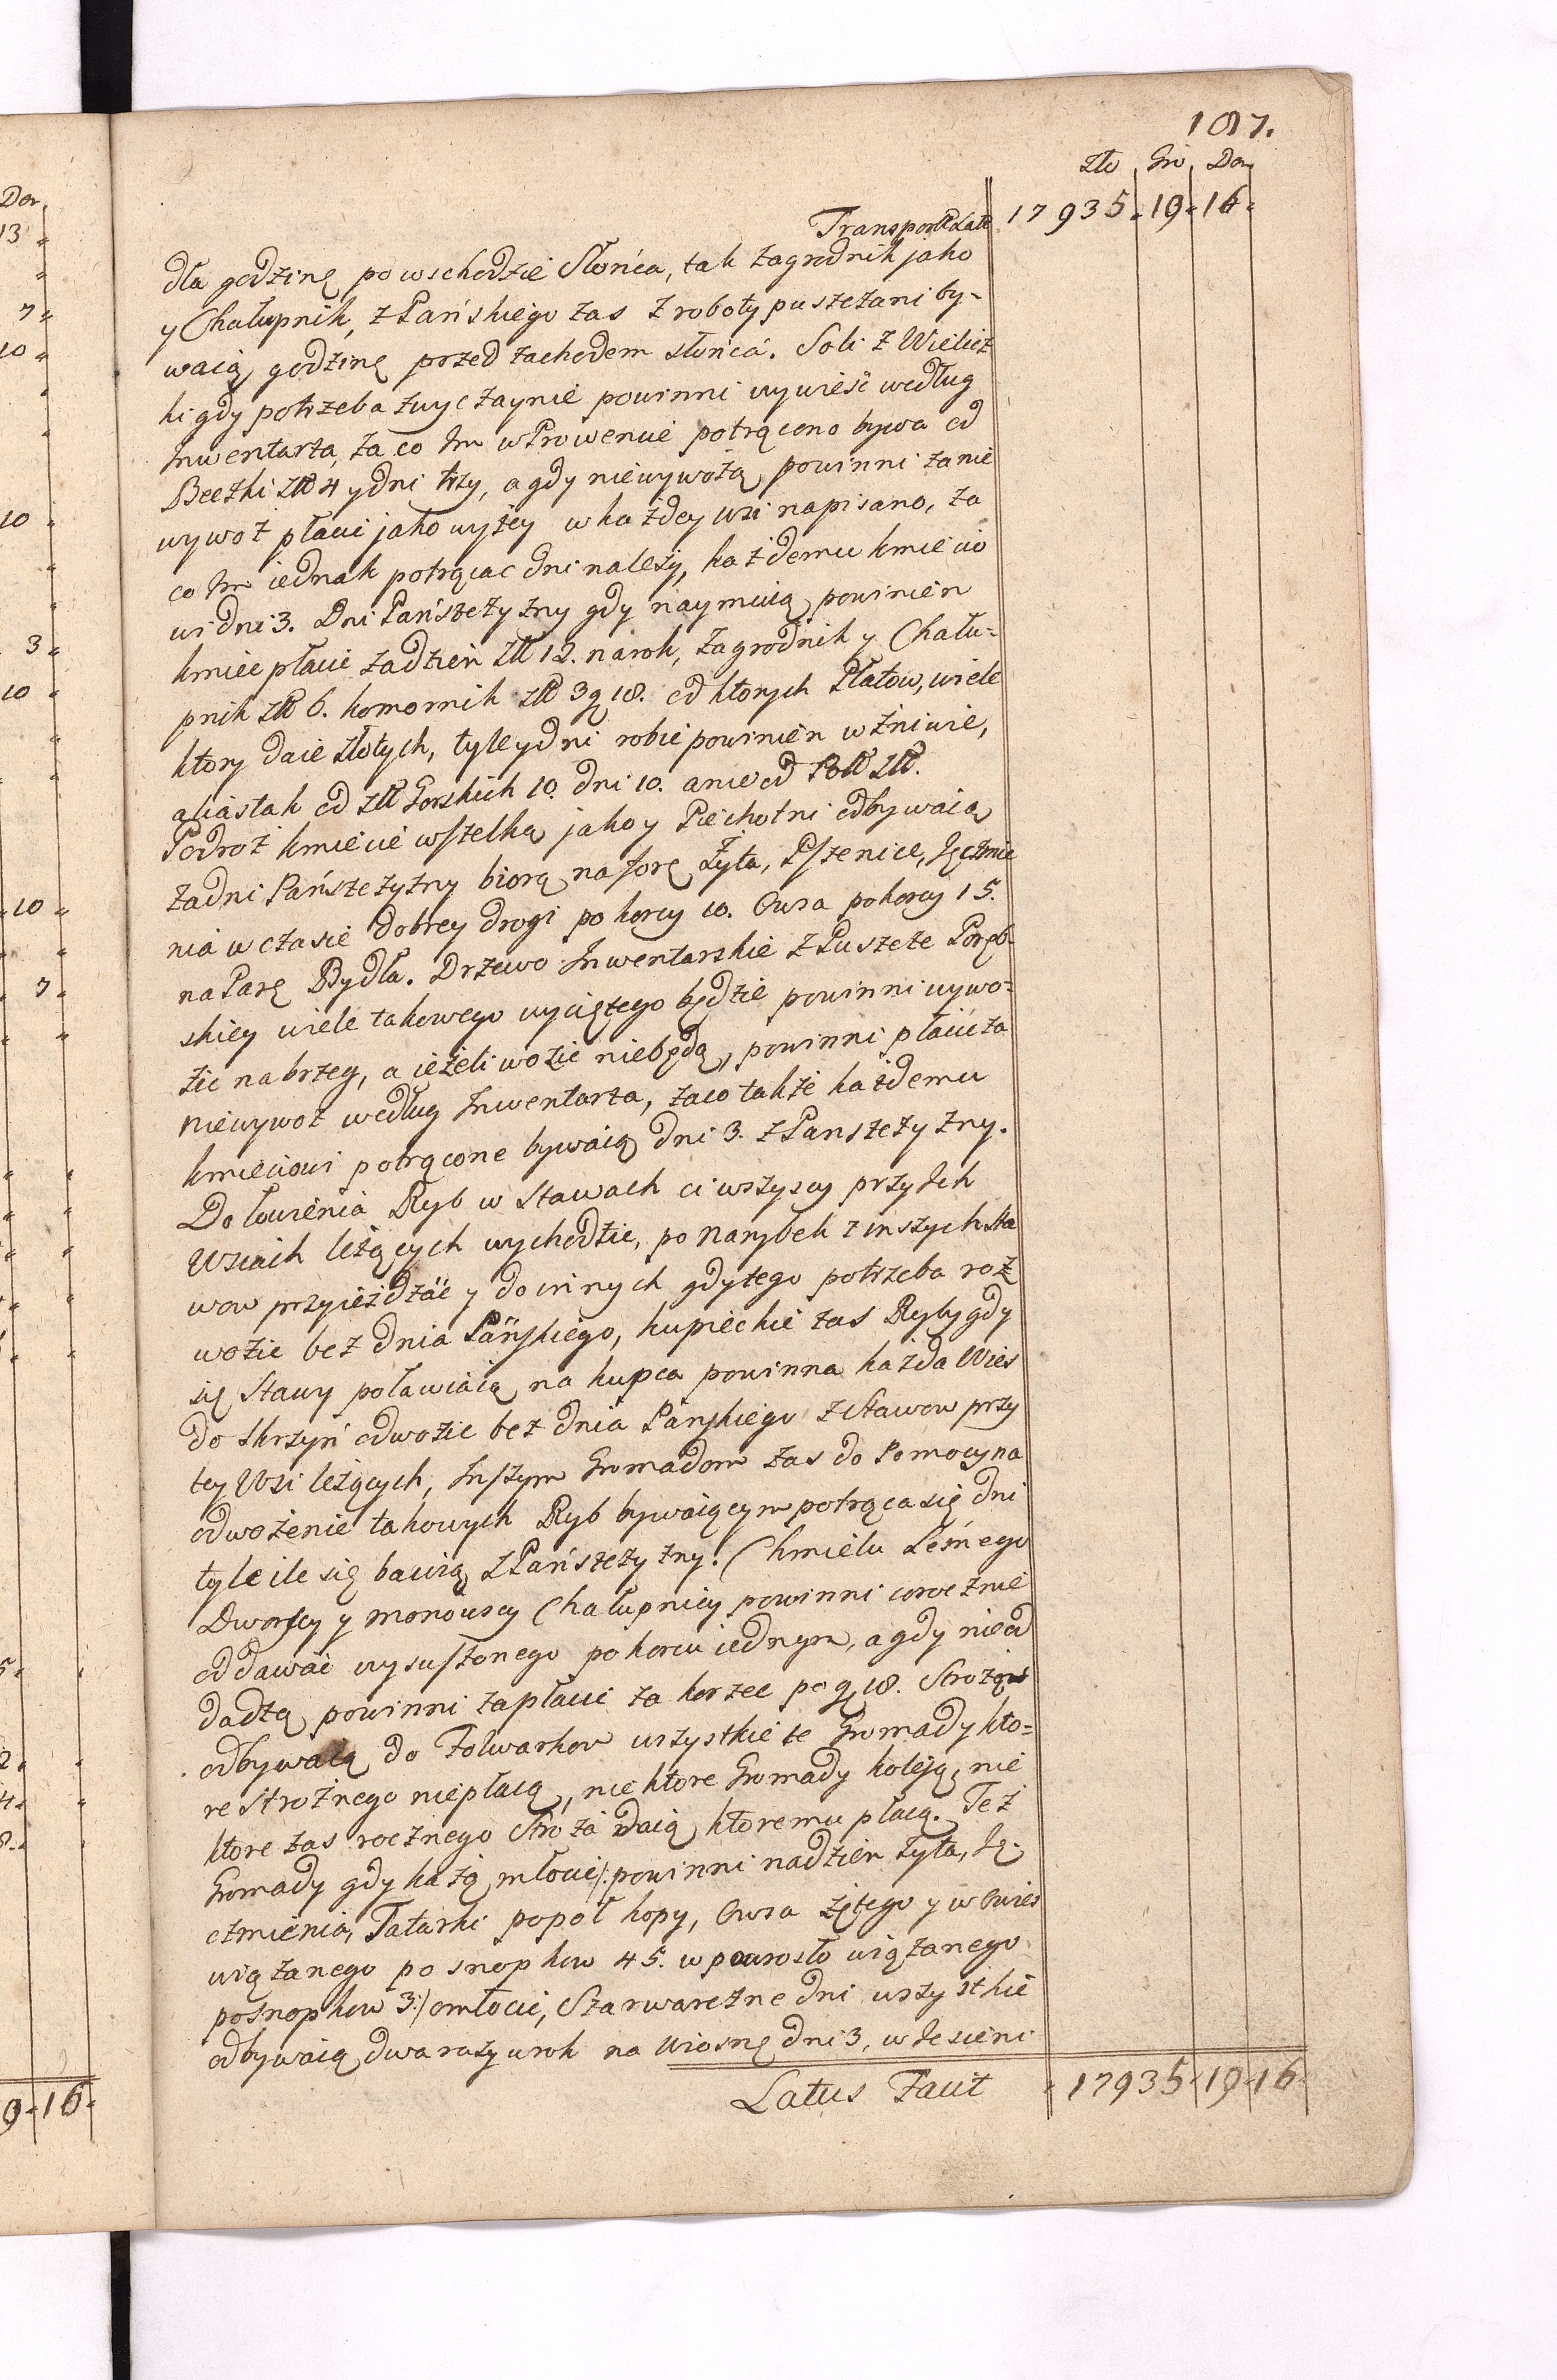 187.
Zło Gro Den
Transport Late 17935 " 19 " 16 "
dła godzinę po wschodzie Słońca, tak Zagrodnik jako
y Chałupnik, z Pańskiego zas z roboty puszczani by-
waią godzinę przed zachodem słońca. Soli z Wielicz
ki gdy potrzeba zwyczaynie powinni wywieść według
Inwentarza, za co Im w Prowencie potrącono bywa od
Beczki Złł 4 y dni trzy, a gdy niewywożą powinni za nie
wywoz płacić jako wyżey w każdey wsi napisano, za
co Im iednak potrącac dni należy, każdemu kmiecio
wi dni 3. Dni Pańszczyzny gdy naymuią powinien
kmiec płacić zadzien Złł 12. narok, Zagrodnik y Chału=
pnik Złł 6. komornik Złł 3 g 18. od ktorych Płatow, wiele
ktory daie złotych, tyle y dni robić powinien w żniwie,
a kiastak od Złł Gorskich 10. dni 10. a nie od Poll Złł.
Podroż kmiecie wszelką jako y Piechotni odbywaią
zadni Pańszczyzny biorą na forę Żyta, Pszenice, Jęczmie
nia w czasie dobrey drogi po korcy 10. Owsa po korcy 15.
na Parę Bydła. Drzewo Inwentarskie z Puszcze Poręb-
skiey wiele takowego wyciętego będzie powinni wywo=
zic na brzeg, a ieżeli wozic niebędą, powinni płacić za
niewywoz według Inwentarza, zaco także każdemu
kmieciowi potrącone bywaią dni 3. z Panszczyzny.
Do łowienia Ryb w Stawach ci wszyscy przy Ich
Wsiach leżących wychodzic, po Narybek z inszych Sta
wow przyieżdżać y do innych gdy tego potrzeba roz
wozic bez dnia Pańskiego, kupieckie zas Ryby gdy
się Stawy poławiaią na kupca powinna każda Wies
do Skrzyń odwozic bez dnia Pańskiego z Stawow przy
tey Wsi leżących, Inszym Gromadom zas do Pomocy na
odwożenie takowych Ryb bywaiącym potrąca się dni
tyle ile się bawią z Pańszczyzny. Chmielu Leśnego
Dworscy y monowscy Chałupnicy powinni corocznie
oddawać wysuszonego po korcu iednym, a gdy nieod
dadzą powinni zapłacić za korzec po g 18. Strożą
odbywaią do Folwarkow wszystkie te Gromady kto=
re Strożnego niepłacą, nie ktore Gromady koleją, nie
ktore zas rocznego Stroża daią ktoremu płacą. Też
Gromady gdy każą młocić /: powinni nadzien Żyta, Ję-
czmienia, Tatarki popoł kopy, Owsa żętego y w Owies
wiązanego po snopkow 45. w powrosło wiązanego
posnopkow 3 :/ omłocić, Szarwarczne dni wszystkie
odbywaią dwa razy w rok na Wiosnę dni 3, w Jesieni
Latus Facit " 17935 " 19 " 16